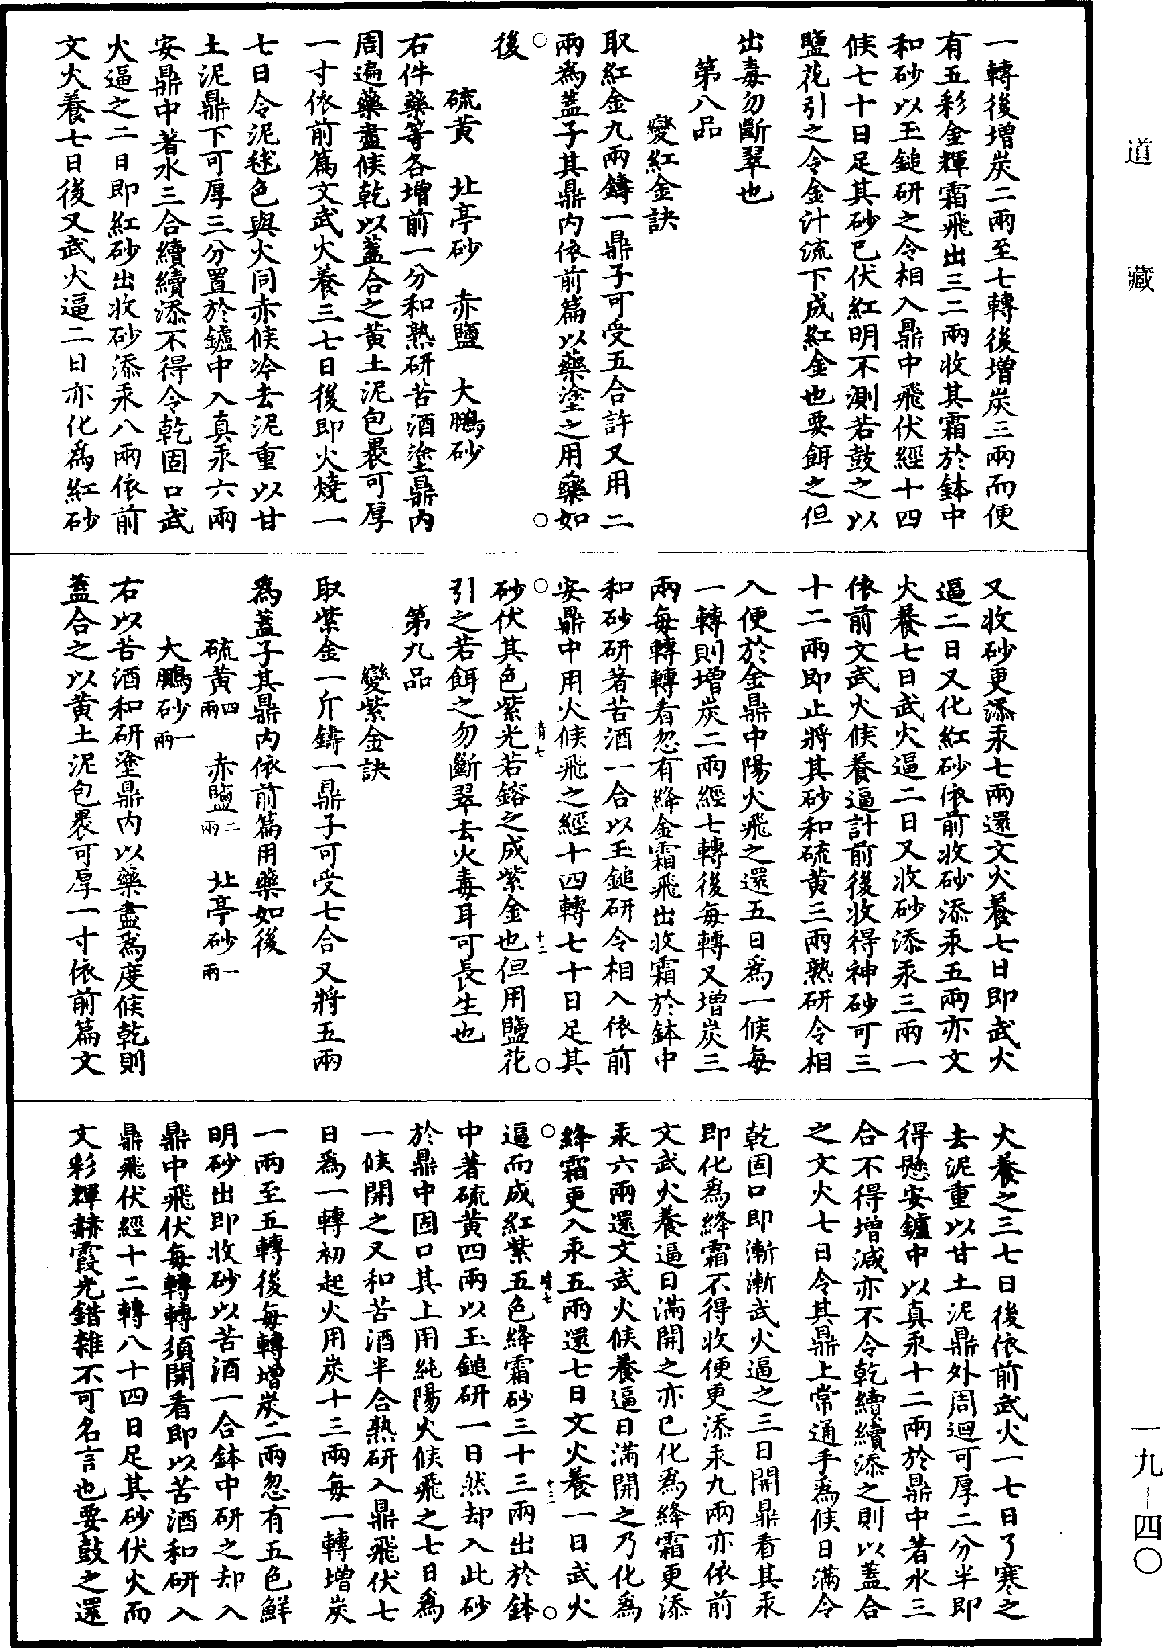 道藏
一轉後增炭二兩至七轉後增炭三兩而便
有五彩金輝霜飛出三二兩收其霜於鉢中
和砂以玉鎚研之令相入鼎中飛伏經十四
候七十日足其砂已伏紅明不測若鼓之以
鹽花引之令金汁流下成紅金也要餌之但
出毒勿斷翠也
第八品
變紅金訣
取紅金九兩鑄一鼎子可受五合許又用二
兩為蓋子其鼎內依前篇以藥塗之用藥如
後
硫黃　北亭砂　赤鹽　大鵬砂
右件藥等各增前一分和熟研苦酒塗鼎內
周遍藥盡候乾以蓋合之黃土泥包裹可厚
一寸依前篇文武火養三七日後即火燒一
七日令泥毬色與火同赤候冷去泥重以甘
土泥鼎下可厚三分置於鑪中入真汞六兩
安鼎中著水三合續續添不得令乾固口武
火逼之二日即紅砂出收砂添汞八兩依前
文火養七日後又武火逼二日亦化為紅砂
又收砂更添汞七兩還文火養七日即武火
逼二日又化紅砂依前收砂添汞五兩亦文
火養七日武火逼二日又收砂添汞三兩一
依前文武火候養逼計前後收得神砂可三
十二兩即止將其砂和硫黃三兩熟研令相
入便於金鼎中陽火飛之還五日為一候每
一轉則增炭二兩經七轉後每轉又增炭三
兩每轉轉看忽有絳金霜飛出收霜於鉢中
和砂研著苦酒一合以玉鎚研令相入依前
安鼎中用火候飛之經十四轉七十日足其
砂伏其色紫光若鎔之成紫金也但用鹽花
引之若餌之勿斷翠去火毒耳可長生也
第九品
變紫金訣
取紫金一斤鑄一鼎子可受七合又將五兩
為蓋子其鼎內依前篇用藥如後
硫黃四兩　赤鹽二兩　北亭砂一兩
大鵬砂一兩
右以苦酒和研塗鼎內以藥盡為度候乾則
蓋合之以黃土泥包裹可厚一寸依前篇文
火養之三七日後依前武火一七日了寒之
去泥重以甘土泥鼎外周迴可厚二分半即
得懸安鑪中以真汞十二兩於鼎中著水三
合不得增減亦不令乾續續添之則以蓋合
之文火七日令其鼎上常通手為候日滿令
乾固口即漸漸武火逼之三日開鼎看其汞
即化為絳霜不得收便更添汞九兩亦依前
文武火養逼日滿開之亦已化為絳霜更添
汞六兩還文武火候養逼日滿開之乃化為
絳霜更入汞五兩還七日文火養一日武火
逼而成紅紫五色絳霜砂三十三兩出於鉢
中著硫黃四兩以玉鎚研一日然却入此砂
於鼎中固口其上用純陽火候飛之七日為
一候開之又和苦酒半合熟研入鼎飛伏七
日為一轉初起火用炭十三兩每一轉增炭
一兩至五轉後每轉增炭二兩忽有五色鮮
明砂出即收砂以苦酒一合鉢中研之却入
鼎中飛伏每轉轉須開看即以苦酒和研入
鼎飛伏經十二轉八十四日足其砂伏火而
文彩輝赫霞光錯雜不可名言也要鼓之還
一九—四〇